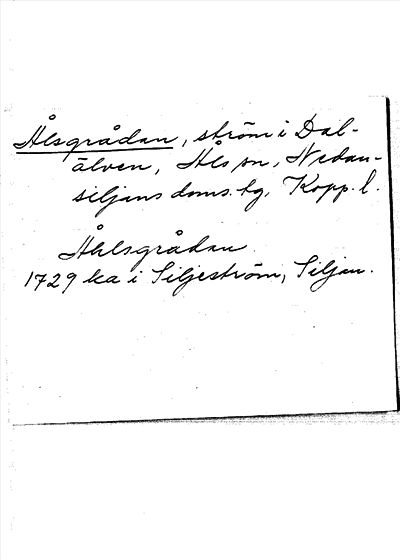 Ålsgrådan, ström i Dal-
älven, Åls sn, Nedan-
siljans doms.hg, Kopp. l.
Åhlsgrådan
1729 ka i Siljeström, Siljan.